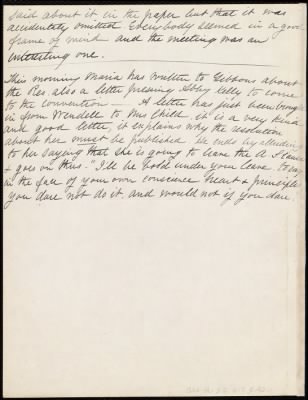 said about it in the paper but that it was
accidentally omitted Everybody seemed in a good
frame of mind and the meeting was an
interesting one.
This morning Maria has written to Gibbons about
the Res also a letter pressing Abby Kelly to come
to the convention — A letter has just been brought
in from Wendell to Mrs Child. It is a very kind
and good letter, it explains why the resolution
about her must be published he ends by alluding
to her saying that she is going to leave the A. S cause
& goes on thus "I'll be bold under your leave to say
in the face of your own conscience heart & principles
you dare not do it, and would not if you dare